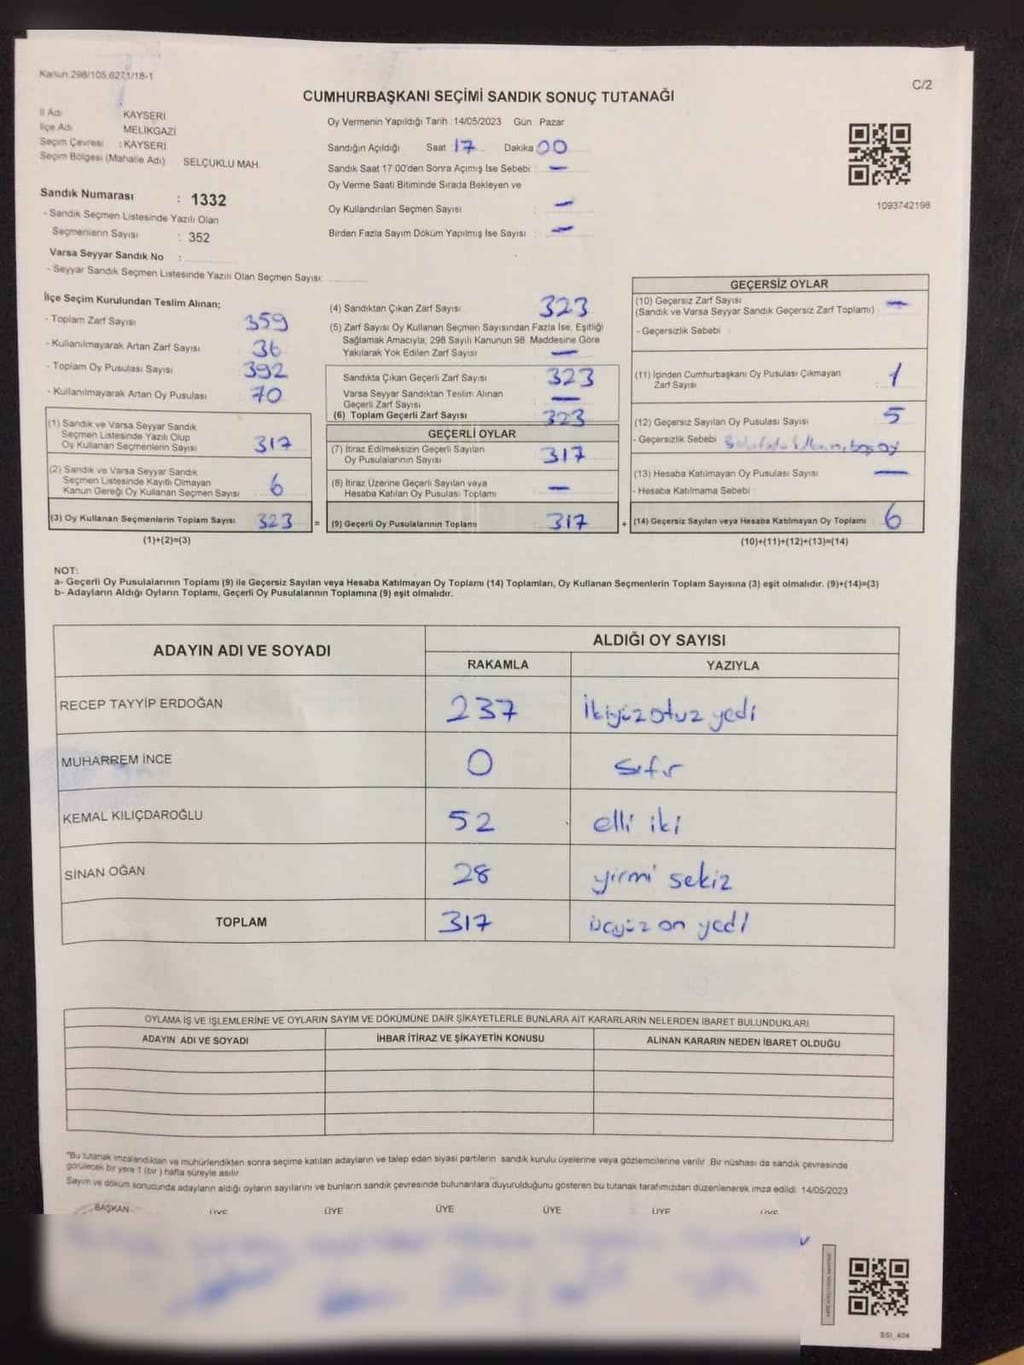 Kanun 298/105,6271/18-1
C/2
CUMHURBAŞKANI SEÇİMİ SANDIK SONUÇ TUTANAĞI
İl Adı KAYSERİ
İlçe Adı MELİKGAZİ
Seçim Çevresi : KAYSERİ
Seçim Bölgesi (Mahalle Adı) SELÇUKLU MAH.
Sandık Numarası : 1332
- Sandık Seçmen Listesinde Yazılı Olan
Seçmenlerin Sayısı : 352
Varsa Seyyar Sandık No :
- Seyyar Sandık Seçmen Listesinde Yazılı Olan Seçmen Sayısı:
Oy Vermenin Yapıldığı Tarih :14/05/2023 Gün Pazar
Sandığın Açıldığı Saat 17 Dakika 00
Sandık Saat 17:00'den Sonra Açımış İse Sebebi : —
Oy Verme Saati Bitiminde Sırada Bekleyen ve
Oy Kullandırılan Seçmen Sayısı : —
Birden Fazla Sayım Döküm Yapılmış İse Sayısı : —
1093742198
İlçe Seçim Kurulundan Teslim Alınan;
- Toplam Zarf Sayısı 359
- Kullanılmayarak Artan Zarf Sayısı 36
- Toplam Oy Pusulası Sayısı 392
- Kullanılmayarak Artan Oy Pusulası 70
(1) Sandık ve Varsa Seyyar Sandık
Seçmen Listesinde Yazılı Olup
Oy Kullanan Seçmenlerin Sayısı 317
(2) Sandık ve Varsa Seyyar Sandık
Seçmen Listesinde Kayıtlı Olmayan
Kanun Gereği Oy Kullanan Seçmen Sayısı 6
(3) Oy Kullanan Seçmenlerin Toplam Sayısı 323 =
(1)+(2)=(3)
(4) Sandıktan Çıkan Zarf Sayısı 323
(5) Zarf Sayısı Oy Kullanan Seçmen Sayısından Fazla İse, Eşitliği
Sağlamak Amacıyla, 298 Sayılı Kanunun 98. Maddesine Göre
Yakılarak Yok Edilen Zarf Sayısı —
Sandıkta Çıkan Geçerli Zarf Sayısı 323
Varsa Seyyar Sandıktan Teslim Alınan
Geçerli Zarf Sayısı —
(6) Toplam Geçerli Zarf Sayısı 323
GEÇERLİ OYLAR
(7) İtiraz Edilmeksizin Geçerli Sayılan
Oy Pusulalarının Sayısı 317
(8) İtiraz Üzerine Geçerli Sayılan veya
Hesaba Katılan Oy Pusulası Toplamı —
(9) Geçerli Oy Pusulalarının Toplamı 317 +
GEÇERSİZ OYLAR
(10) Geçersiz Zarf Sayısı
(Sandık ve Varsa Seyyar Sandık Geçersiz Zarf Toplamı) —
- Geçersizlik Sebebi :
(11) İçinden Cumhurbaşkanı Oy Pusulası Çıkmayan
Zarf Sayısı : 1
(12) Geçersiz Sayılan Oy Pusulası Sayısı 5
- Geçersizlik Sebebi
(13) Hesaba Katılmayan Oy Pusulası Sayısı —
- Hesaba Katılmama Sebebi
(14) Geçersiz Sayılan veya Hesaba Katılmayan Oy Toplamı 6
(10)+(11)+(12)+(13)=(14)
NOT:
a- Geçerli Oy Pusulalarının Toplamı (9) ile Geçersiz Sayılan veya Hesaba Katılmayan Oy Toplamı (14) Toplamları, Oy Kullanan Seçmenlerin Toplam Sayısına (3) eşit olmalıdır. (9)+(14)=(3)
b- Adayların Aldığı Oyların Toplamı, Geçerli Oy Pusulalarının Toplamına (9) eşit olmalıdır.
ADAYIN ADI VE SOYADI ALDIĞI OY SAYISI
RAKAMLA YAZIYLA
RECEP TAYYİP ERDOĞAN 237 ikiyüzotuz yedi
MUHARREM İNCE 0 sıfır
KEMAL KILIÇDAROĞLU 52 elli iki
SİNAN OĞAN 28 yirmi sekiz
TOPLAM 317 üçyüz on yedi
OYLAMA İŞ VE İŞLEMLERİNE VE OYLARIN SAYIM VE DÖKÜMÜNE DAİR ŞİKAYETLERLE BUNLARA AİT KARARLARIN NELERDEN İBARET BULUNDUKLARI
ADAYIN ADI VE SOYADI İHBAR İTİRAZ VE ŞİKAYETİN KONUSU ALINAN KARARIN NEDEN İBARET OLDUĞU
"Bu tutanak imzalandıktan ve mühürlendikten sonra seçime katılan adayların ve talep eden siyasi partilerin sandık kurulu üyelerine veya gözlemcilerine verilir. Bir nüshası da sandık çevresinde
görülecek bir yere 1 (bir) hafta süreyle asılır.
Sayım ve döküm sonucunda adayların aldığı oyların sayılarını ve bunların sandık çevresinde bulunanlara duyurulduğunu gösteren bu tutanak tarafımızdan düzenlenerek imza edildi. 14/05/2023
BAŞKAN ÜYE ÜYE ÜYE ÜYE ÜYE ÜYE
SSI_404